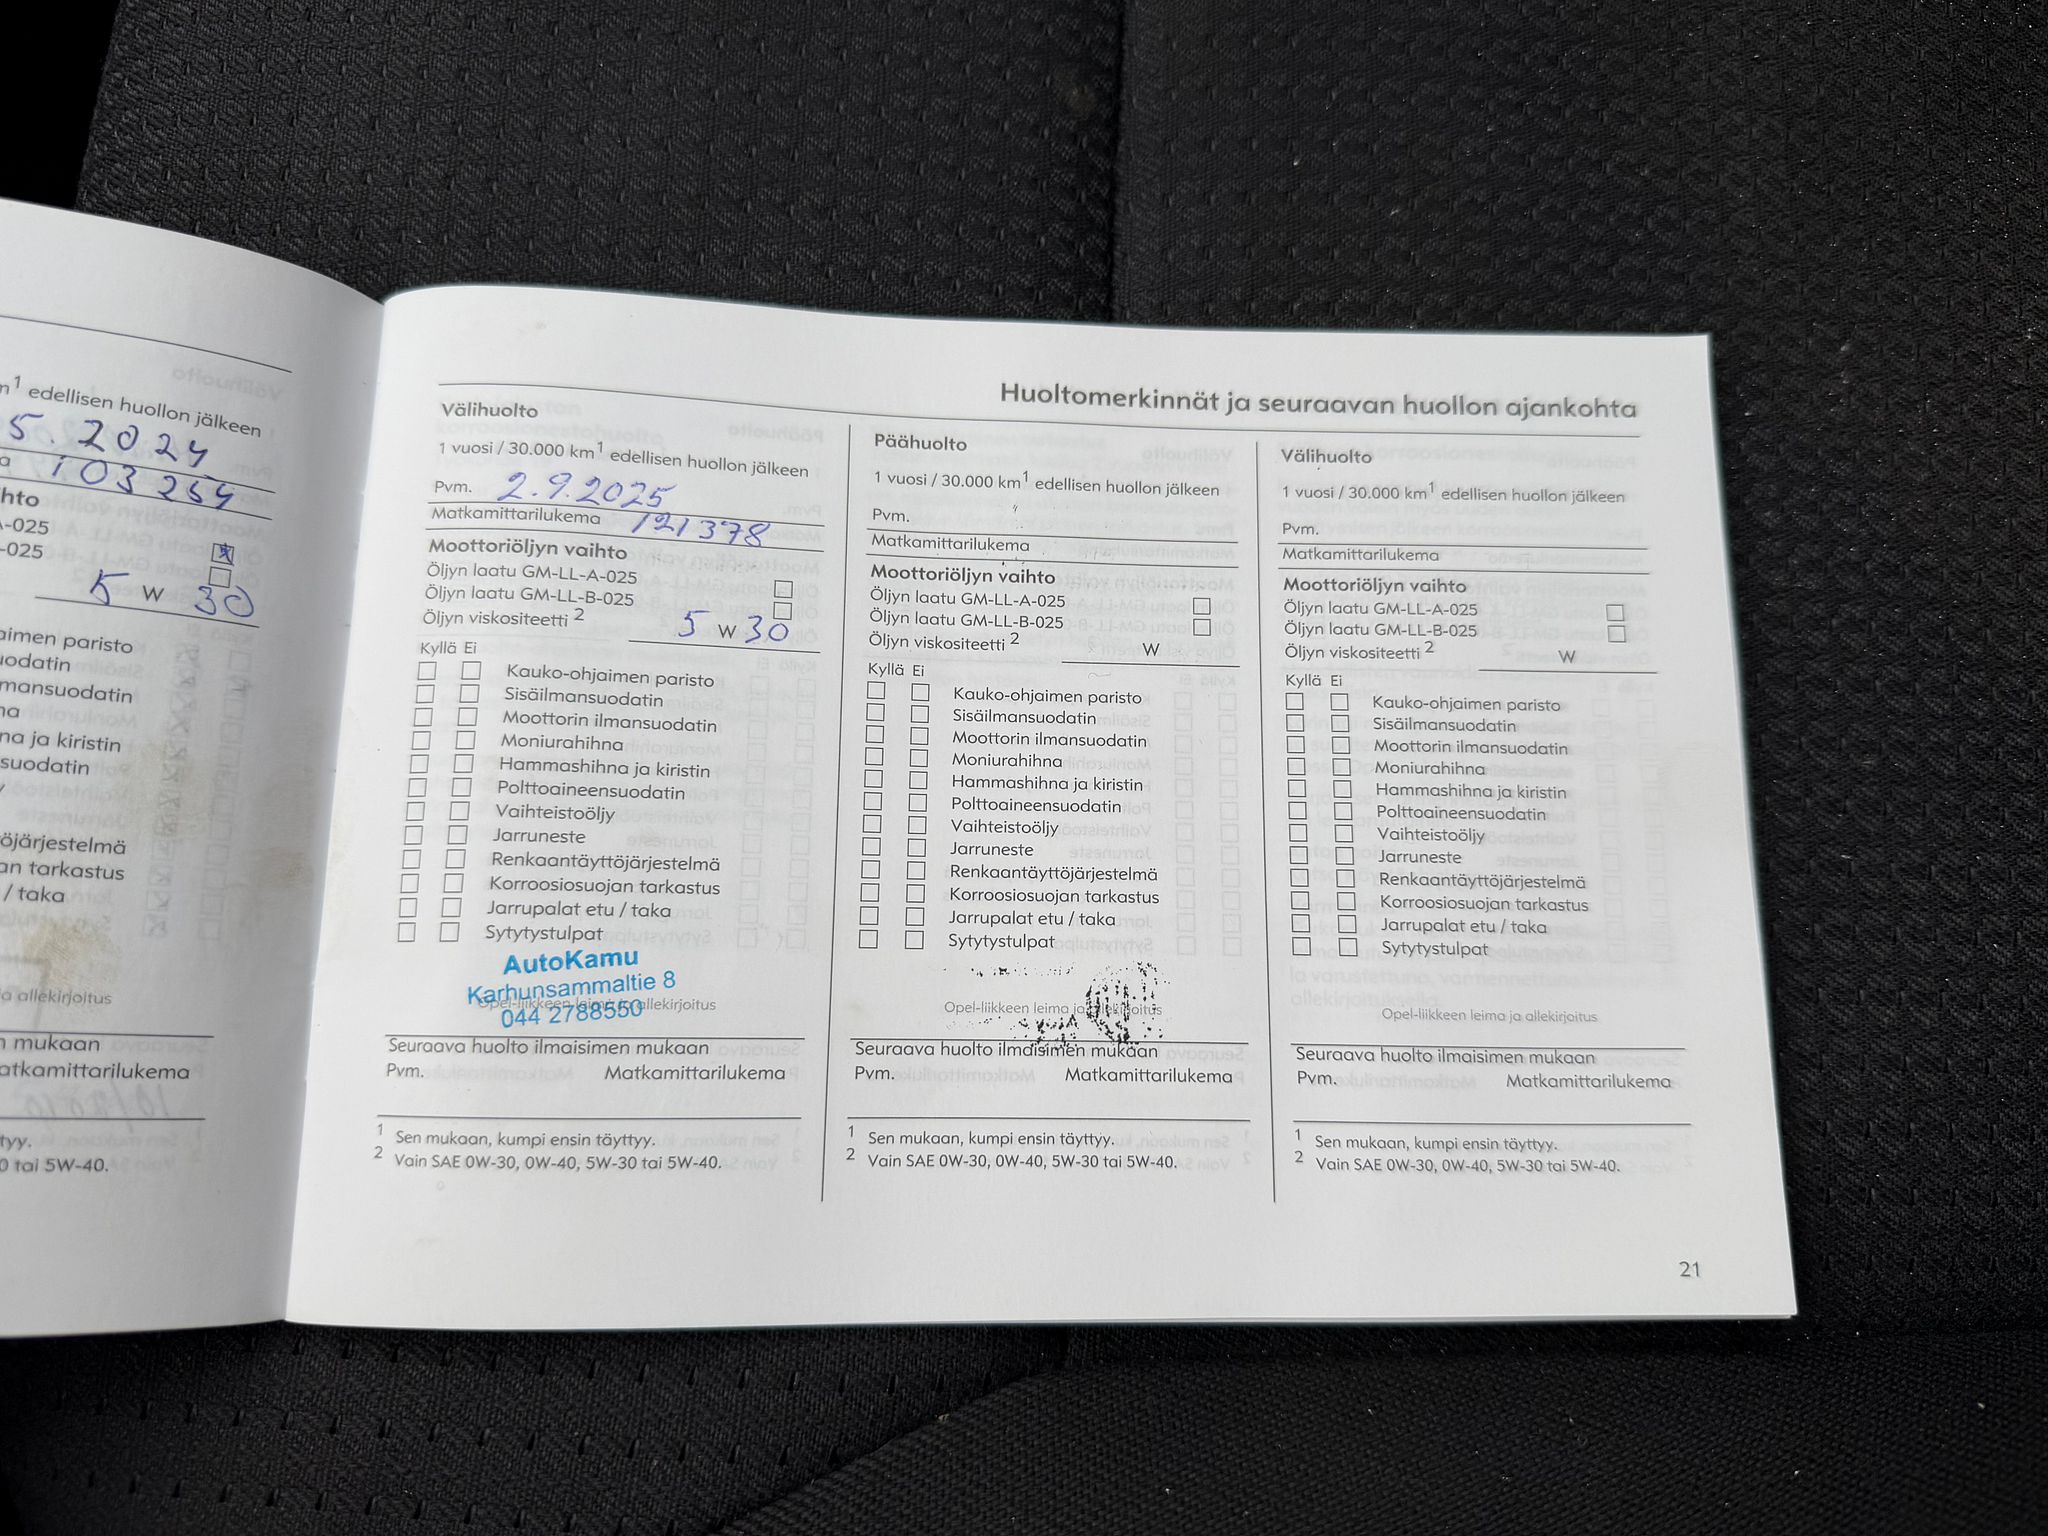 m¹ edellisen huollon jälkeen
5.2024
a 103 254
hto
A-025
-025
5 W 30
aimen paristo
uodatin
mansuodatin
na
na ja kiristin
suodatin
y
töjärjestelmä
an tarkastus
/ taka
a allekirjoitus
n mukaan
atkamittarilukema
tyy.
0 tai 5W-40.
Huoltomerkinnät ja seuraavan huollon ajankohta
Välihuolto
1 vuosi / 30.000 km¹ edellisen huollon jälkeen
Pvm. 2.9.2025
Matkamittarilukema 121378
Moottoriöljyn vaihto
Öljyn laatu GM-LL-A-025
Öljyn laatu GM-LL-B-025
Öljyn viskositeetti ² 5 W 30
Kyllä Ei
Kauko-ohjaimen paristo
Sisäilmansuodatin
Moottorin ilmansuodatin
Moniurahihna
Hammashihna ja kiristin
Polttoaineensuodatin
Vaihteistoöljy
Jarruneste
Renkaantäyttöjärjestelmä
Korroosiosuojan tarkastus
Jarrupalat etu / taka
Sytytystulpat
AutoKamu
Karhunsammaltie 8
Opel-liikkeen leima ja allekirjoitus
044 2788550
Seuraava huolto ilmaisimen mukaan
Pvm. Matkamittarilukema
¹ Sen mukaan, kumpi ensin täyttyy.
² Vain SAE 0W-30, 0W-40, 5W-30 tai 5W-40.
Päähuolto
1 vuosi / 30.000 km¹ edellisen huollon jälkeen
Pvm.
Matkamittarilukema
Moottoriöljyn vaihto
Öljyn laatu GM-LL-A-025
Öljyn laatu GM-LL-B-025
Öljyn viskositeetti ² W
Kyllä Ei
Kauko-ohjaimen paristo
Sisäilmansuodatin
Moottorin ilmansuodatin
Moniurahihna
Hammashihna ja kiristin
Polttoaineensuodatin
Vaihteistoöljy
Jarruneste
Renkaantäyttöjärjestelmä
Korroosiosuojan tarkastus
Jarrupalat etu / taka
Sytytystulpat
Opel-liikkeen leima ja allekirjoitus
Seuraava huolto ilmaisimen mukaan
Pvm. Matkamittarilukema
¹ Sen mukaan, kumpi ensin täyttyy.
² Vain SAE 0W-30, 0W-40, 5W-30 tai 5W-40.
Välihuolto
1 vuosi / 30.000 km¹ edellisen huollon jälkeen
Pvm.
Matkamittarilukema
Moottoriöljyn vaihto
Öljyn laatu GM-LL-A-025
Öljyn laatu GM-LL-B-025
Öljyn viskositeetti ² W
Kyllä Ei
Kauko-ohjaimen paristo
Sisäilmansuodatin
Moottorin ilmansuodatin
Moniurahihna
Hammashihna ja kiristin
Polttoaineensuodatin
Vaihteistoöljy
Jarruneste
Renkaantäyttöjärjestelmä
Korroosiosuojan tarkastus
Jarrupalat etu / taka
Sytytystulpat
Opel-liikkeen leima ja allekirjoitus
Seuraava huolto ilmaisimen mukaan
Pvm. Matkamittarilukema
¹ Sen mukaan, kumpi ensin täyttyy.
² Vain SAE 0W-30, 0W-40, 5W-30 tai 5W-40.
21